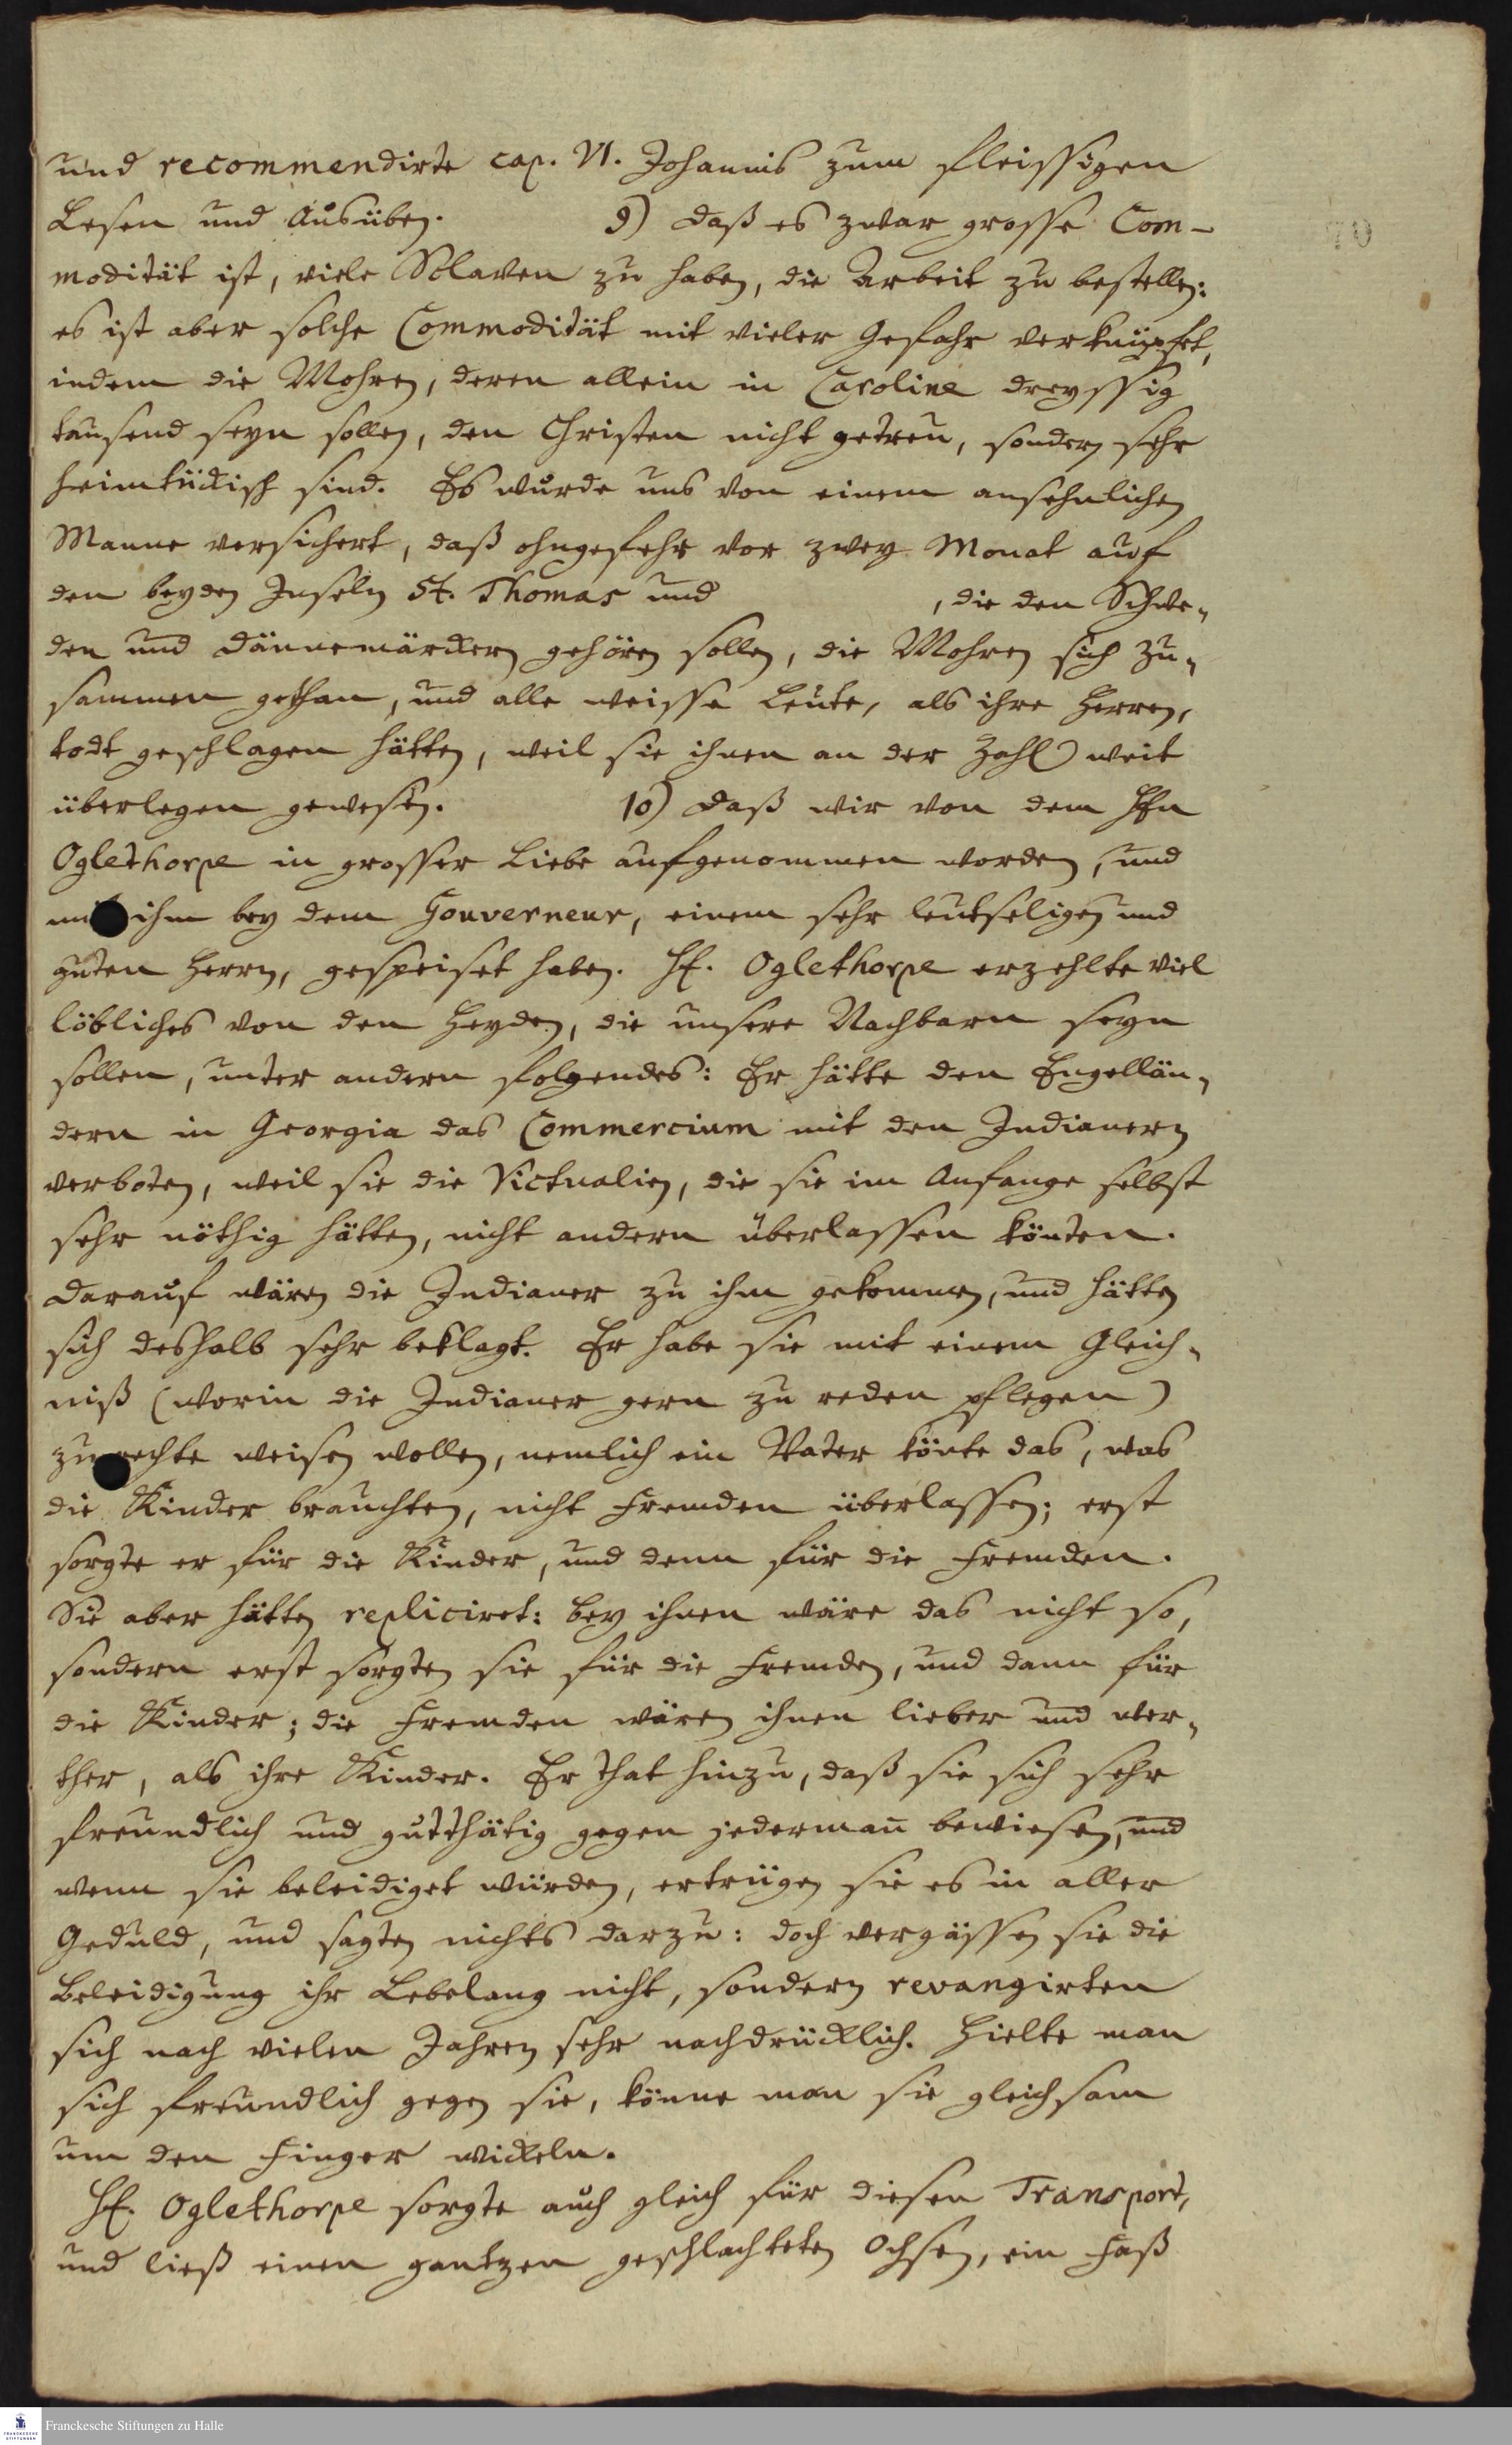 und recommendirte cap. VI. Johannis zum fleissigen
Lesen und Ausüben. 9) Daß es zwar grosse Com-
modität ist, viele Sclaven zu haben, die Arbeit zu bestellen:
es ist aber solche Commodität mit vieler Gefahr verknüpfet,
indem die Mohren, deren allein in Caroline dreyssig
tausend seyn sollen, den Christen nicht getreu, sondern sehr
heimtückisch sind. Es wurde uns von einem ansehnlichen
Manne versichert, daß ohngefehr vor zwey Monat auf
den beyden Inseln St. Thomas und , die den Schwe-
den und Dännemärckern gehören sollen, die Mohren sich zu-
sammen gethan, und alle weisse Leute, als ihre Herren,
todt geschlagen hätten, weil sie ihnen an der Zahl weit
überlegen gewesen. 10) Daß wir von dem Hhn
Oglethorpe in grosser Liebe aufgenommen worden, und
mit ihm bey dem Gouverneur, einem sehr leutseligen und
guten Herrn, gespeiset haben. Hr. Oglethorpe erzehlte viel
löbliches von den Heyden, die unsere Nachbarn seyn
sollen, unter andern folgendes: Er hätte den Engellän-
dern in Georgia das Commercium mit den Indianern
verboten, weil sie die Victualien, die sie im Anfange selbst
sehr nöthig hätten, nicht andern überlassen könten.
Darauf wären die Indianer zu ihm gekommen, und hätten
sich deshalb sehr beklagt. Er habe sie mit einem Gleich-
niß (worin die Indianer gern zu reden pflegen)
zu rechte weisen wollen, nemlich ein Vater könte das, was
die Kinder brauchten, nicht Fremden überlassen; erst
sorgte er für die Kinder, und denn für die Fremden.
Sie aber hätten repliciret: bey ihnen wäre das nicht so,
sondern erst sorgten sie für die Fremden, und dann für
die Kinder; die Fremden wären ihnen lieber und wer-
ther, als ihre Kinder. Er that hinzu, daß sie sich sehr
freundlich und gutthätig gegen jederman̄ bewiesen, und
wenn sie beleidiget würden, ertrügen sie es in aller
Geduld, und sagten nichts darzu: doch vergässen sie die
Beleidigung ihr Lebelang nicht, sondern revangirten
sich nach vielen Jahren sehr nachdrücklich. Hielte man
sich freundlich gegen sie, könne man sie gleichsam
um den Finger wickeln.
Hr. Oglethorpe sorgte auch gleich für diesen Transport,
und ließ einen gantzen geschlachteten Ochsen, ein Faß
70
Franckesche Stiftungen zu Halle
FRANCKESCHE
STIFTUNGEN